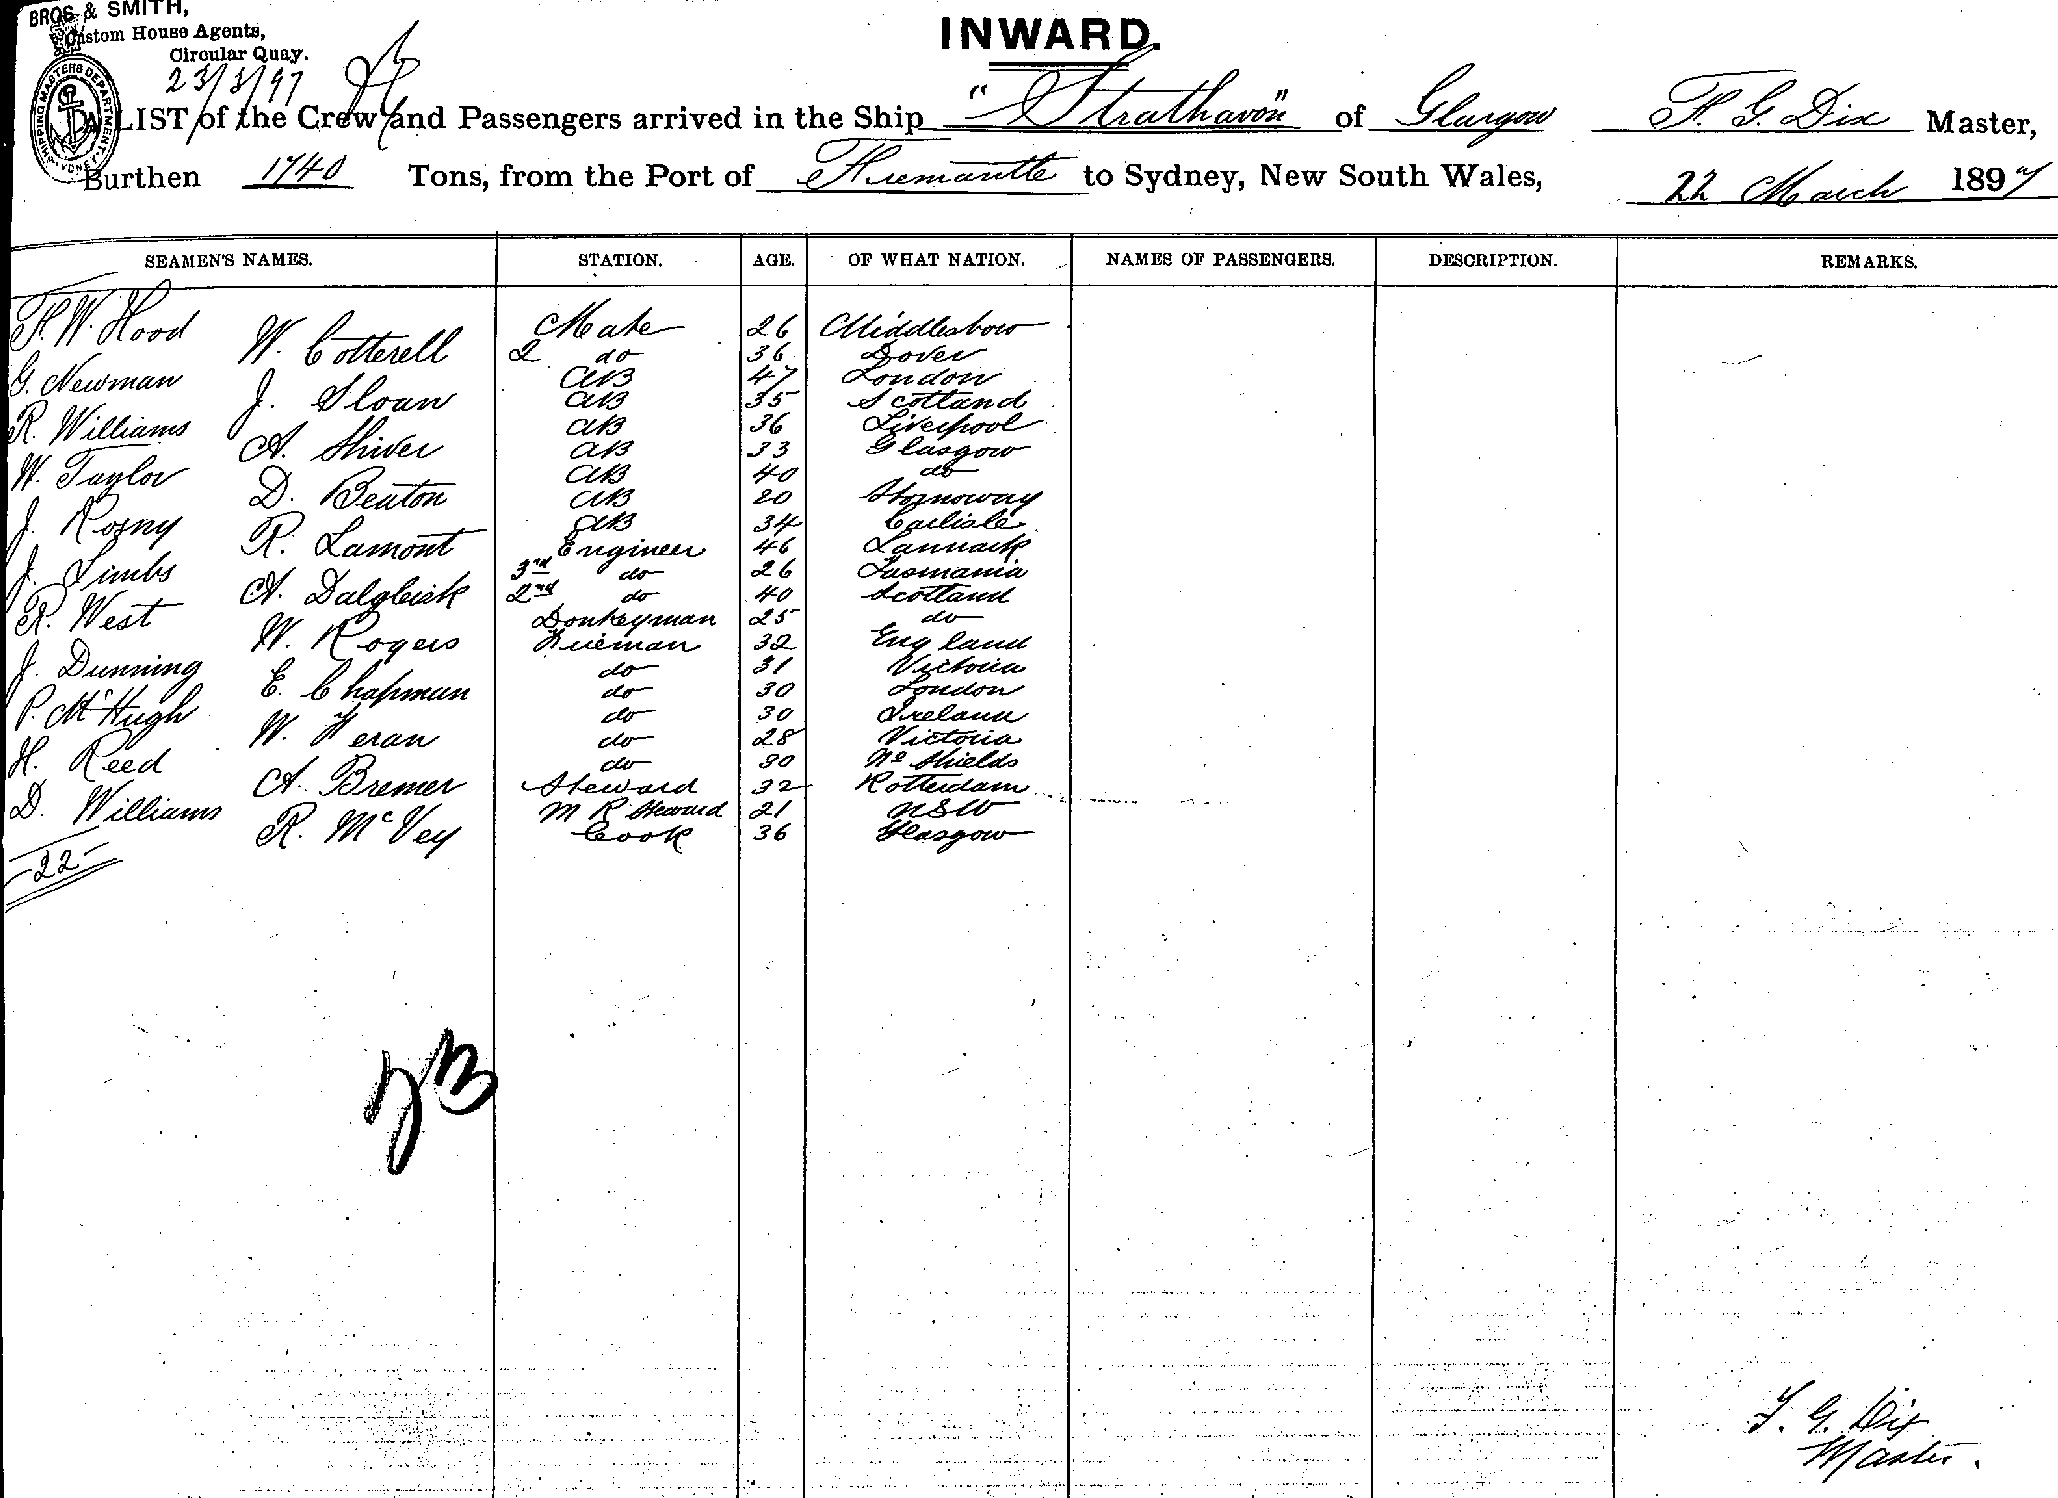 BROS & SMITH,
Custom House Agents,
Circular Quay.
23/3/97
SHIPPING MASTERS DEPARTMENT
INWARD.
A LIST of the Crew and Passengers arrived in the Ship "Strathavon" of Glasgow F. G. Dix Master,
Burthen 1740 Tons, from the Port of Fremantle to Sydney, New South Wales, 22 March 1897
SEAMEN'S NAMES. STATION. AGE. OF WHAT NATION. NAMES OF PASSENGERS. DESCRIPTION. REMARKS.
F. W. Hood Mate 26 Middlesbow
W. Cotterell 2 do 36 Dover
G. Newman AB 47 London
J. Sloan AB 35 Scotland
R. Williams AB 36 Liverpool
A. Shiver AB 33 Glasgow
W. Taylor AB 40 do
D. Beaton AB 20 Stornoway
J. AB 34 Carlisle
R. Lamont Engineer 46 Lannark
J. Limbs 3rd do 26 Tasmania
A. Dalgleish 2nd do 40 Scotland
R. West Donkeyman 25 do
W. Rogers Fireman 32 England
J. Dunning do 31 Victoria
E. Chapman do 30 London
P. McHugh do 30 Ireland
W. Feran do 28 Victoria
H. Reed do 30 No Shields
A. Bremer Steward 32 Rotterdam
D. Williams M R Steward 21 NSW
R. McVey Cook 36 Glasgow
22
F. G. Dix
Master.